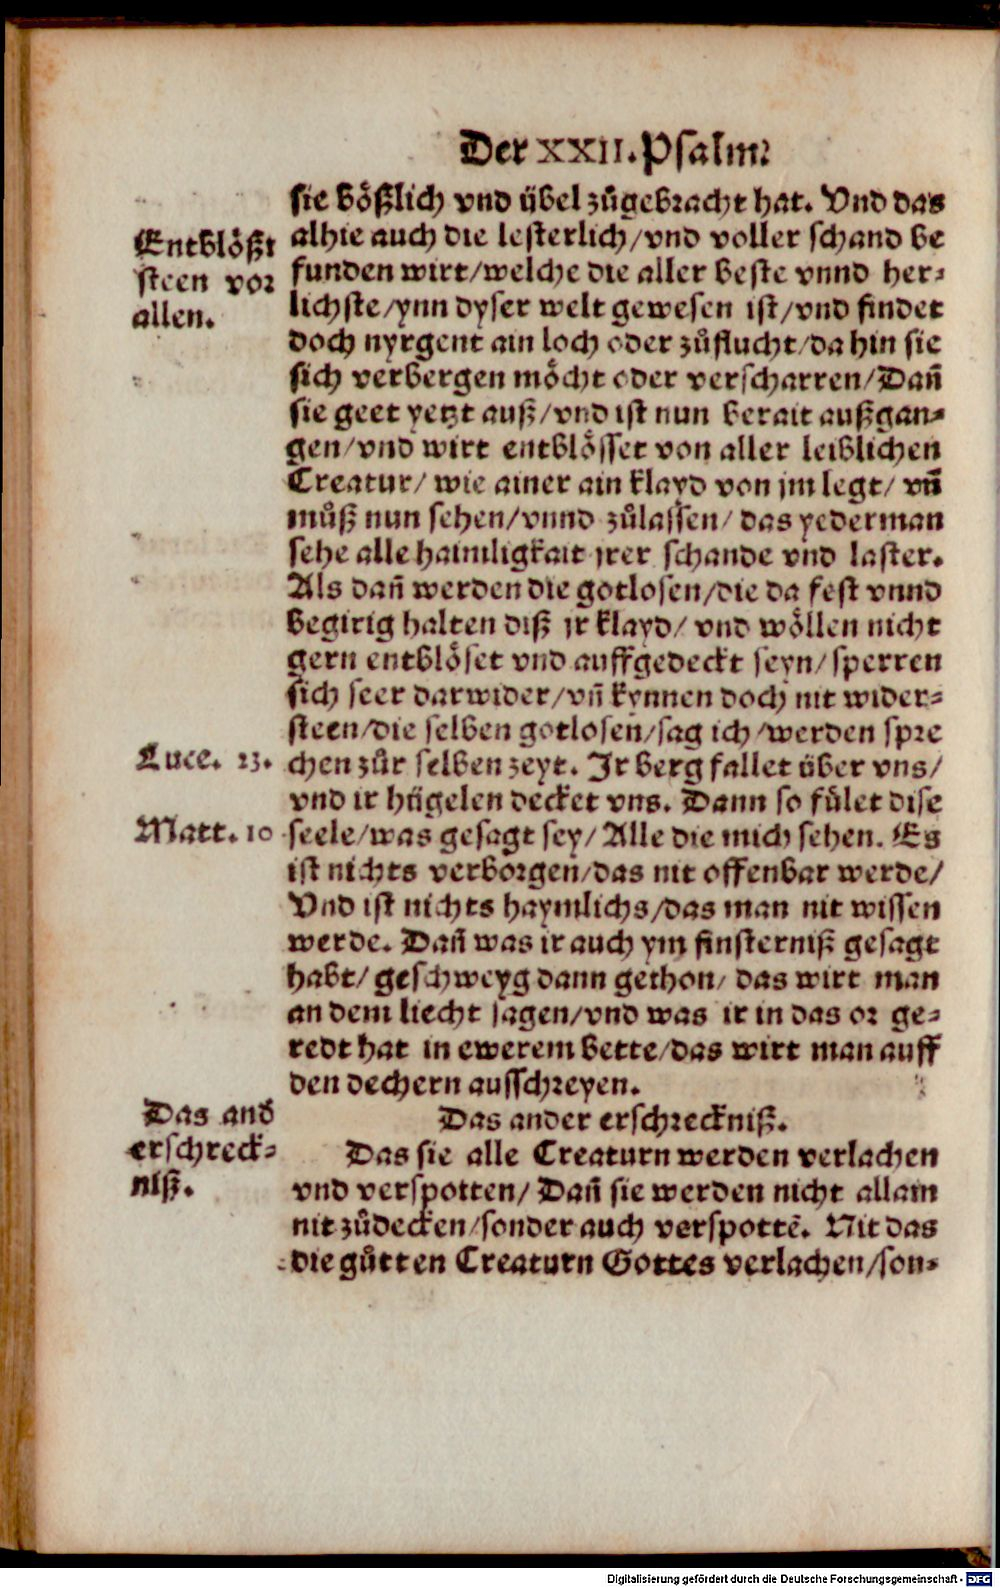 Der XXII. Psalm.
sie bößlich vnd übel zůgebracht hat. Vnd das
Entblößt
steen vor
allen.
alhie auch die lesterlich/vnd voller schand be
funden wirt/welche die aller beste vnnd her-
lichste/ynn dyser welt gewesen ist/vnd findet
doch nyrgent ain loch oder zůflucht/da hin sie
sich verbergen möcht oder verscharren/Dañ
sie geet yetzt auß/vnd ist nun berait außgan-
gen/vnd wirt entblösset von aller leiblichen
Creatur/ wie ainer ain klayd von jm legt/ vñ
můß nun sehen/vnnd zůlassen/ das yederman
sehe alle haimligkait jrer schande vnd laster.
Als dañ werden die gotlosen/die da fest vnnd
begirig halten diß jr klayd/ vnd wöllen nicht
gern entblöset vnd auffgedeckt seyn/sperren
sich seer darwider/vñ kynnen doch nit wider-
steen/die selben gotlosen/sag ich/werden spre
Luce. 23.
chen zůr selben zeyt. Ir berg fallet über vns/
vnd ir hügelen decket vns. Dann so fület dise
Matt. 10
seele/was gesagt sey/ Alle die mich sehen. Es
ist nichts verborgen/das nit offenbar werde/
Vnd ist nichts haymlichs/das man nit wissen
werde. Dañ was ir auch ym finsterniß gesagt
habt/ geschweyg dann gethon/ das wirt man
an dem liecht sagen/vnd was ir in das or ge-
redt hat in ewerem bette/das wirt man auff
den dechern ausschreyen.
Das and
erschreck-
niß.
Das ander erschreckniß.
Das sie alle Creaturn werden verlachen
vnd verspotten/ Dañ sie werden nicht allain
nit zůdecken/sonder auch verspottē. Nit das
die gůtten Creaturn Gottes verlachen/son-
Digitalisierung gefördert durch die Deutsche Forschungsgemeinschaft - DFG